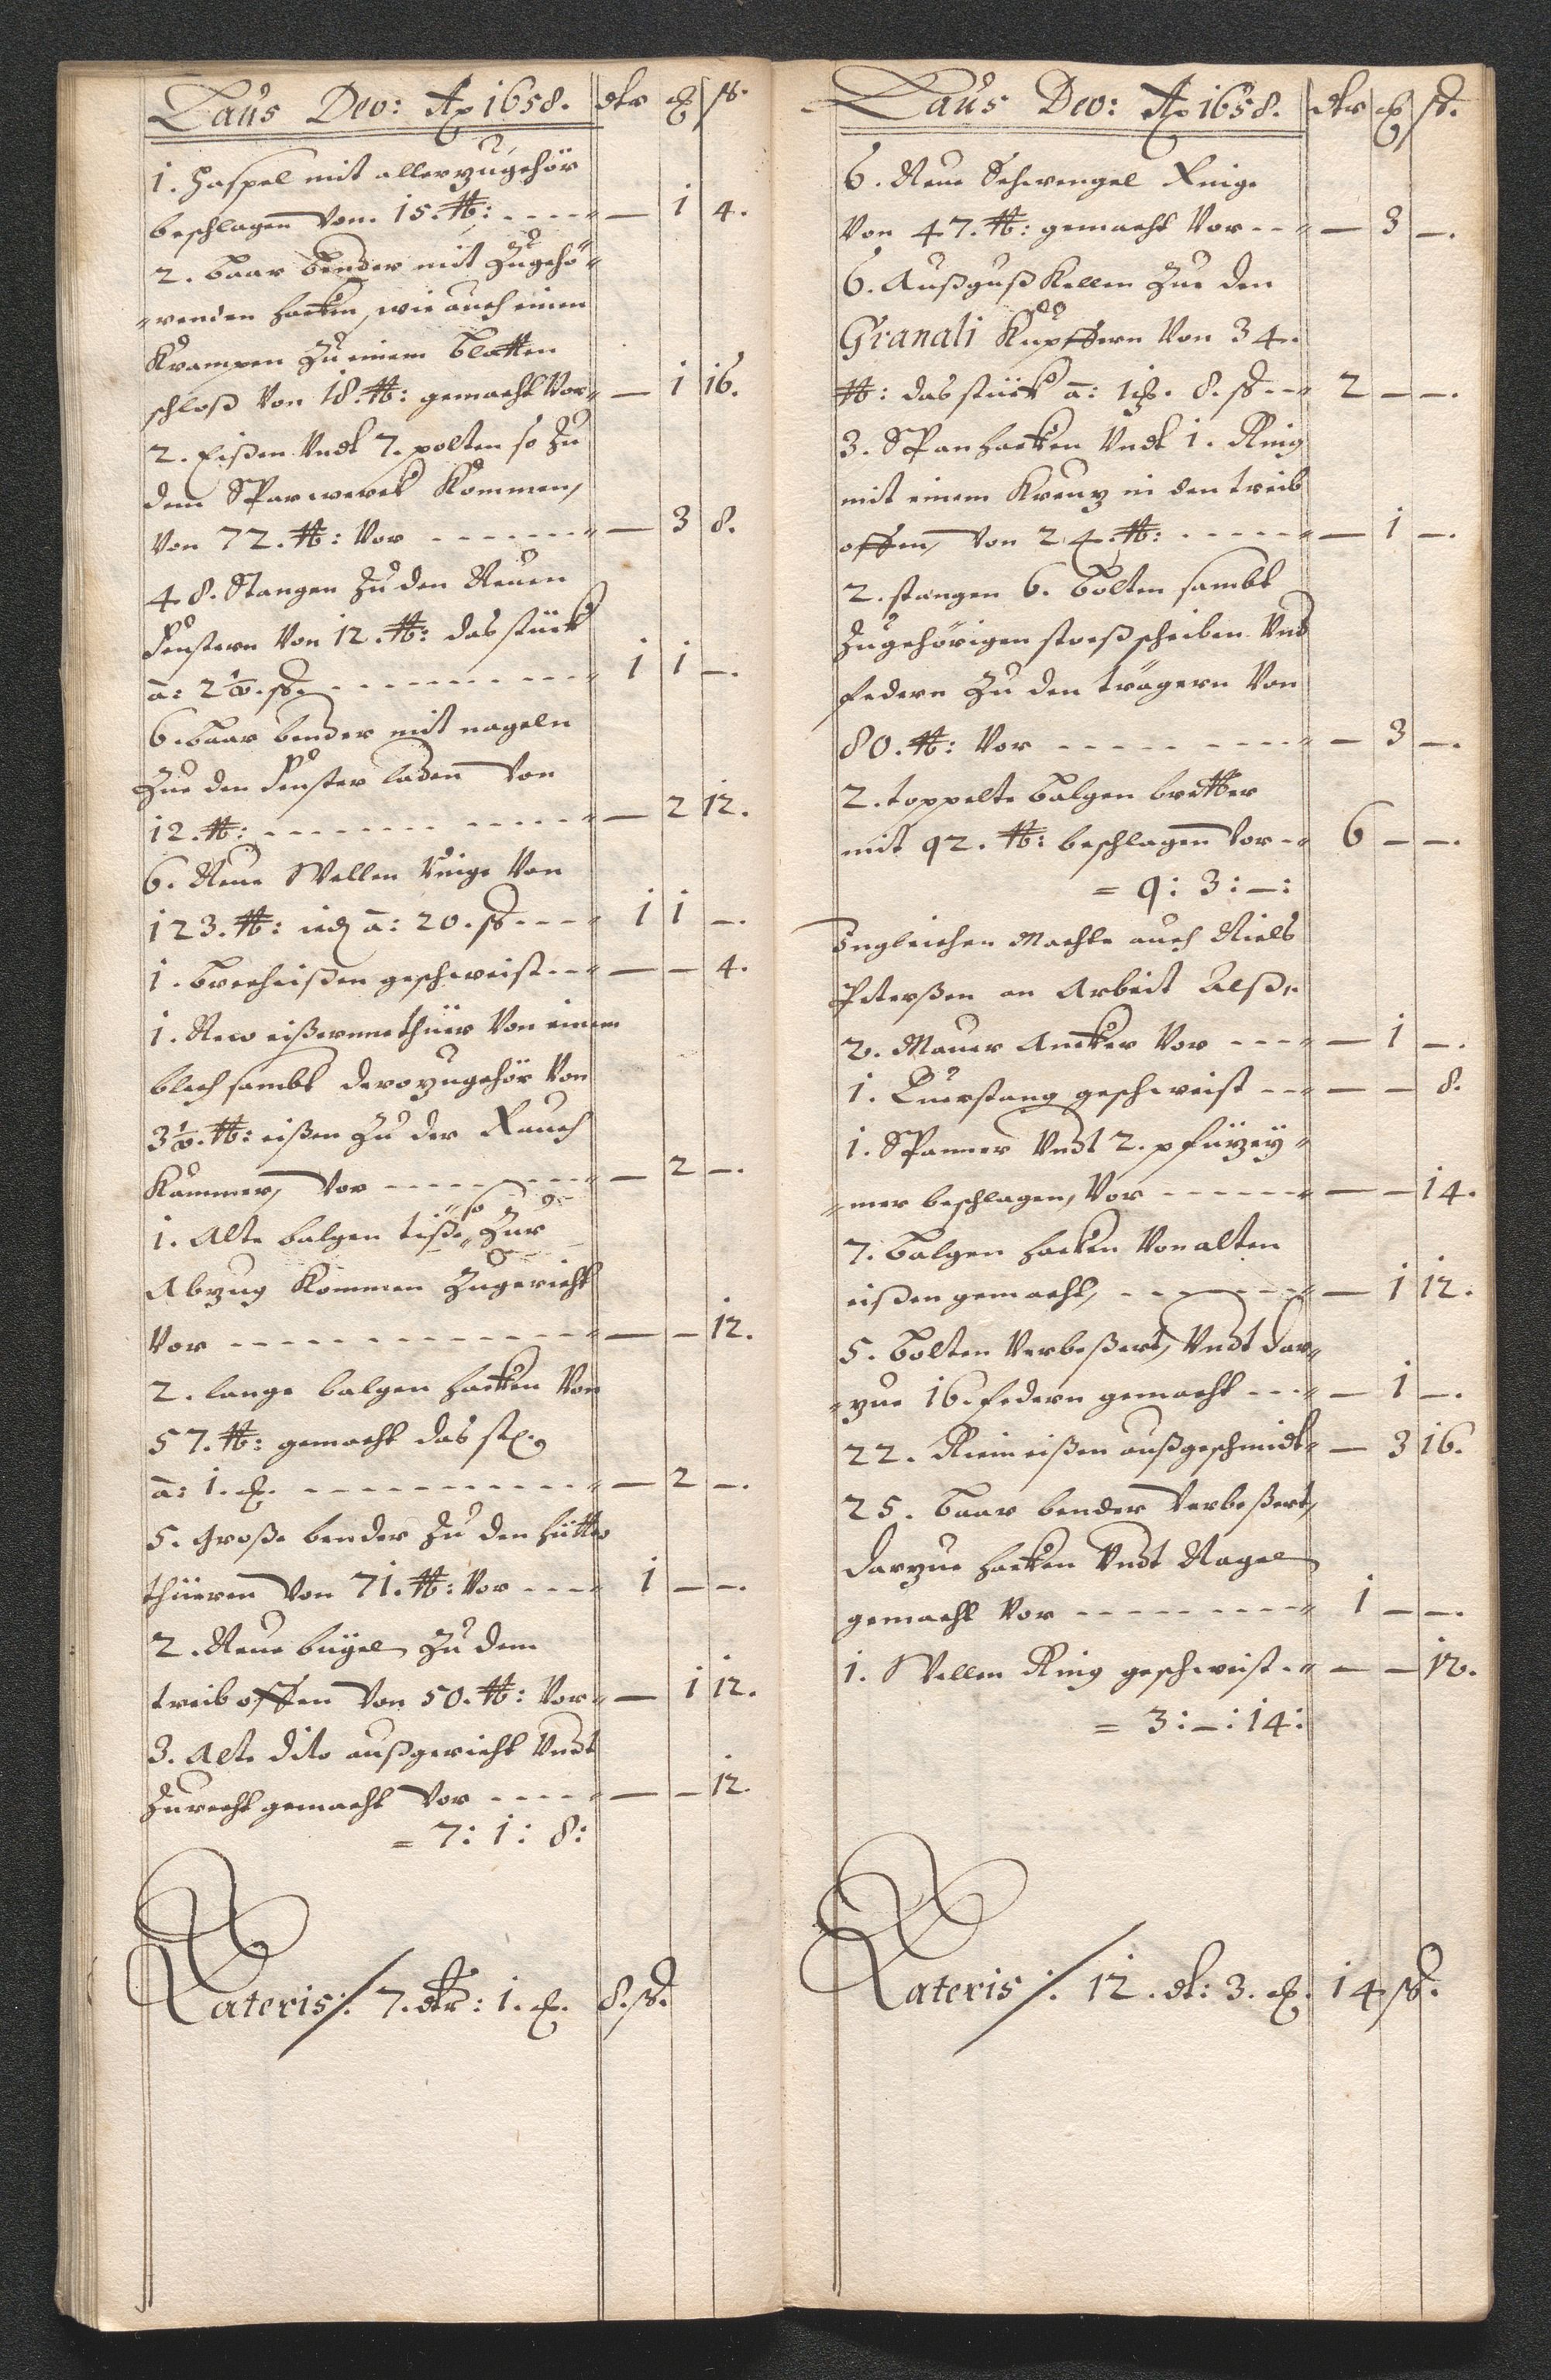 Laus Deo: Ao 1658. dlr ȩ ſß.
1. Haspel mit allerzugehör
beschlagen Von. 15. ℔: — 1 4.
2. baar bender mit Zugehö-
renden hacken, wie auch einen
Krampen Zu einem blatten
schloß Von 18. ℔: gemacht Vor — 1 16.
2. Eißen Undt 7. polten so Zu
dem SParwerck Kommen,
Von 72. ℔: Vor — 3 8.
48. Stangen Zu den Neuen
Fenstern Von 12. ℔: das stück
a: 2½. ſß. 1 1 —.
6. baar bender mit nageln
Zue den Fenster laden Von
12. ℔: — 2 12.
6. Neue Wellen Ringe Von
123. ℔: ied a: 20. ſß. 1 1 —.
1. brecheißen geschweist — — 4.
1. New eißernne thüer Von einem
blech sambt darozugehör Von
3½. ℔: eißen Zu der Rauch
Kammer, Vor — 2 —.
1. Alte balgen tiße, so Zur
Abzug Kommen Zugericht
Vor — — 12.
2. lange balgen hacken Von
57. ℔: gemacht das st.
a: 1. ȩ. — 2 —.
5. große bender Zu den hütten
thüeren Von 71. ℔: Vor 1 — —.
2. Neue bügel Zu dem
treib offen Von 50. ℔: Vor — 1 12.
3. Alte dito außgericht Undt
Zurecht gemacht Vor — — 12.
= 7: 1: 8:
Lateris:/. 7. dlr: 1. ȩ. 8. ſß.
Laus Deo: Ao 1658. dlr ȩ ſß.
6. Neue Schwengel Ringe
Von 47. ℔: gemacht Vor — 3 —.
6. Außguß Kellen Zue den
Granali Kupffern Von 34.
℔: das stück a: 1 ȩ. 8. ſß. 2 — —.
3. SPanhacken Undt 1. Ring
mit einem Kreuz in den treib
offen, Von 24. ℔: — 1 —.
2. stangen 6. bolten sambt
Zugehörigen stoeß scheiben Und
federn Zu den trägern Von
80. ℔: Vor — 3 —.
2. toppelte balgen bretter
mit 92. ℔: beschlagen Vor 6 — —.
= 9: 3: —:
Ingleichen Machte auch Niels
Peterßen an Arbeit Alß,
2. Mauer Ancker Vor — 1 —.
1. Querstang geschweist — — 8.
1. SPanner Undt 2. pfützey-
mer beschlagen, Vor — — 14.
7. balgen hacken Von alten
eißen gemacht, — 1 12.
5. bolten Verbeßert, Undt dar-
zue 16. federn gemacht — 1 —.
22. Rieim eißen außgeschmidt — 3 16.
25. baar bender Verbeßert,
darzue hacken Undt Nagel
gemacht Vor 1 — —.
1. Wellen Ring geschweist — — 12.
= 3: —: 14:
Lateris:/. 12. dl: 3. ȩ. 14 ſß.